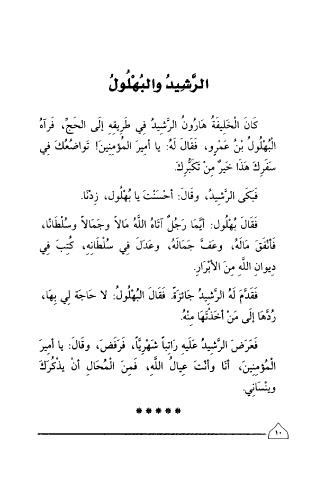 الرَّشِيدُ والبُهْلُولُ
كَانَ الْخَلِيفَةُ هَارُونُ الرَّشِيدُ فِي طَرِيقِهِ إلَى الحَجِّ، فَرَآهُ
الْبُهْلُولُ بْنُ عَمْرٍو، فَقَالَ لَهُ: يا أمِيرَ المُؤْمِنِينَ! تَوَاضُعُكَ فِي
سَفَرِكَ هَذَا خَيْرٌ مِنْ تَكَبُّرِكَ.
فَبَكَى الرَّشِيدُ، وقَالَ: أحْسَنْتَ يا بُهْلُولُ، زِدْنَا.
فَقَالَ بُهْلُولُ: أيُّمَا رَجُلٍ آتَاهُ اللَّهُ مَالاً وجَمَالاً وسُلْطَانًا،
فَأنْفَقَ مَالَهُ، وعَفَّ جَمَالَهُ، وعَدَلَ فِي سُلْطَانِهِ، كُتِبَ فِي
دِيوانِ اللَّهِ مِنَ الأبْرَارِ.
فَقَدَّمَ لَهُ الرَّشِيدُ جَائِزَةً. فَقَالَ البُهْلُولُ: لا حَاجَةَ لِي بِهَا،
رُدَّهَا إلَى مَنْ أخَذْتَهَا مِنْهُ.
فَعَرَضَ الرَّشِيدُ عَلَيْهِ رَاتِباً شَهْرِيًّا، فَرَفَضَ، وقَالَ: يا أمِيرَ
الْمُؤْمِنِينَ، أنَا وأنْتَ عِيالُ اللَّهِ، فَمِنَ الْمُحَالِ أنْ يذْكُرَكَ
وينْسَانِي.
*****
١٠